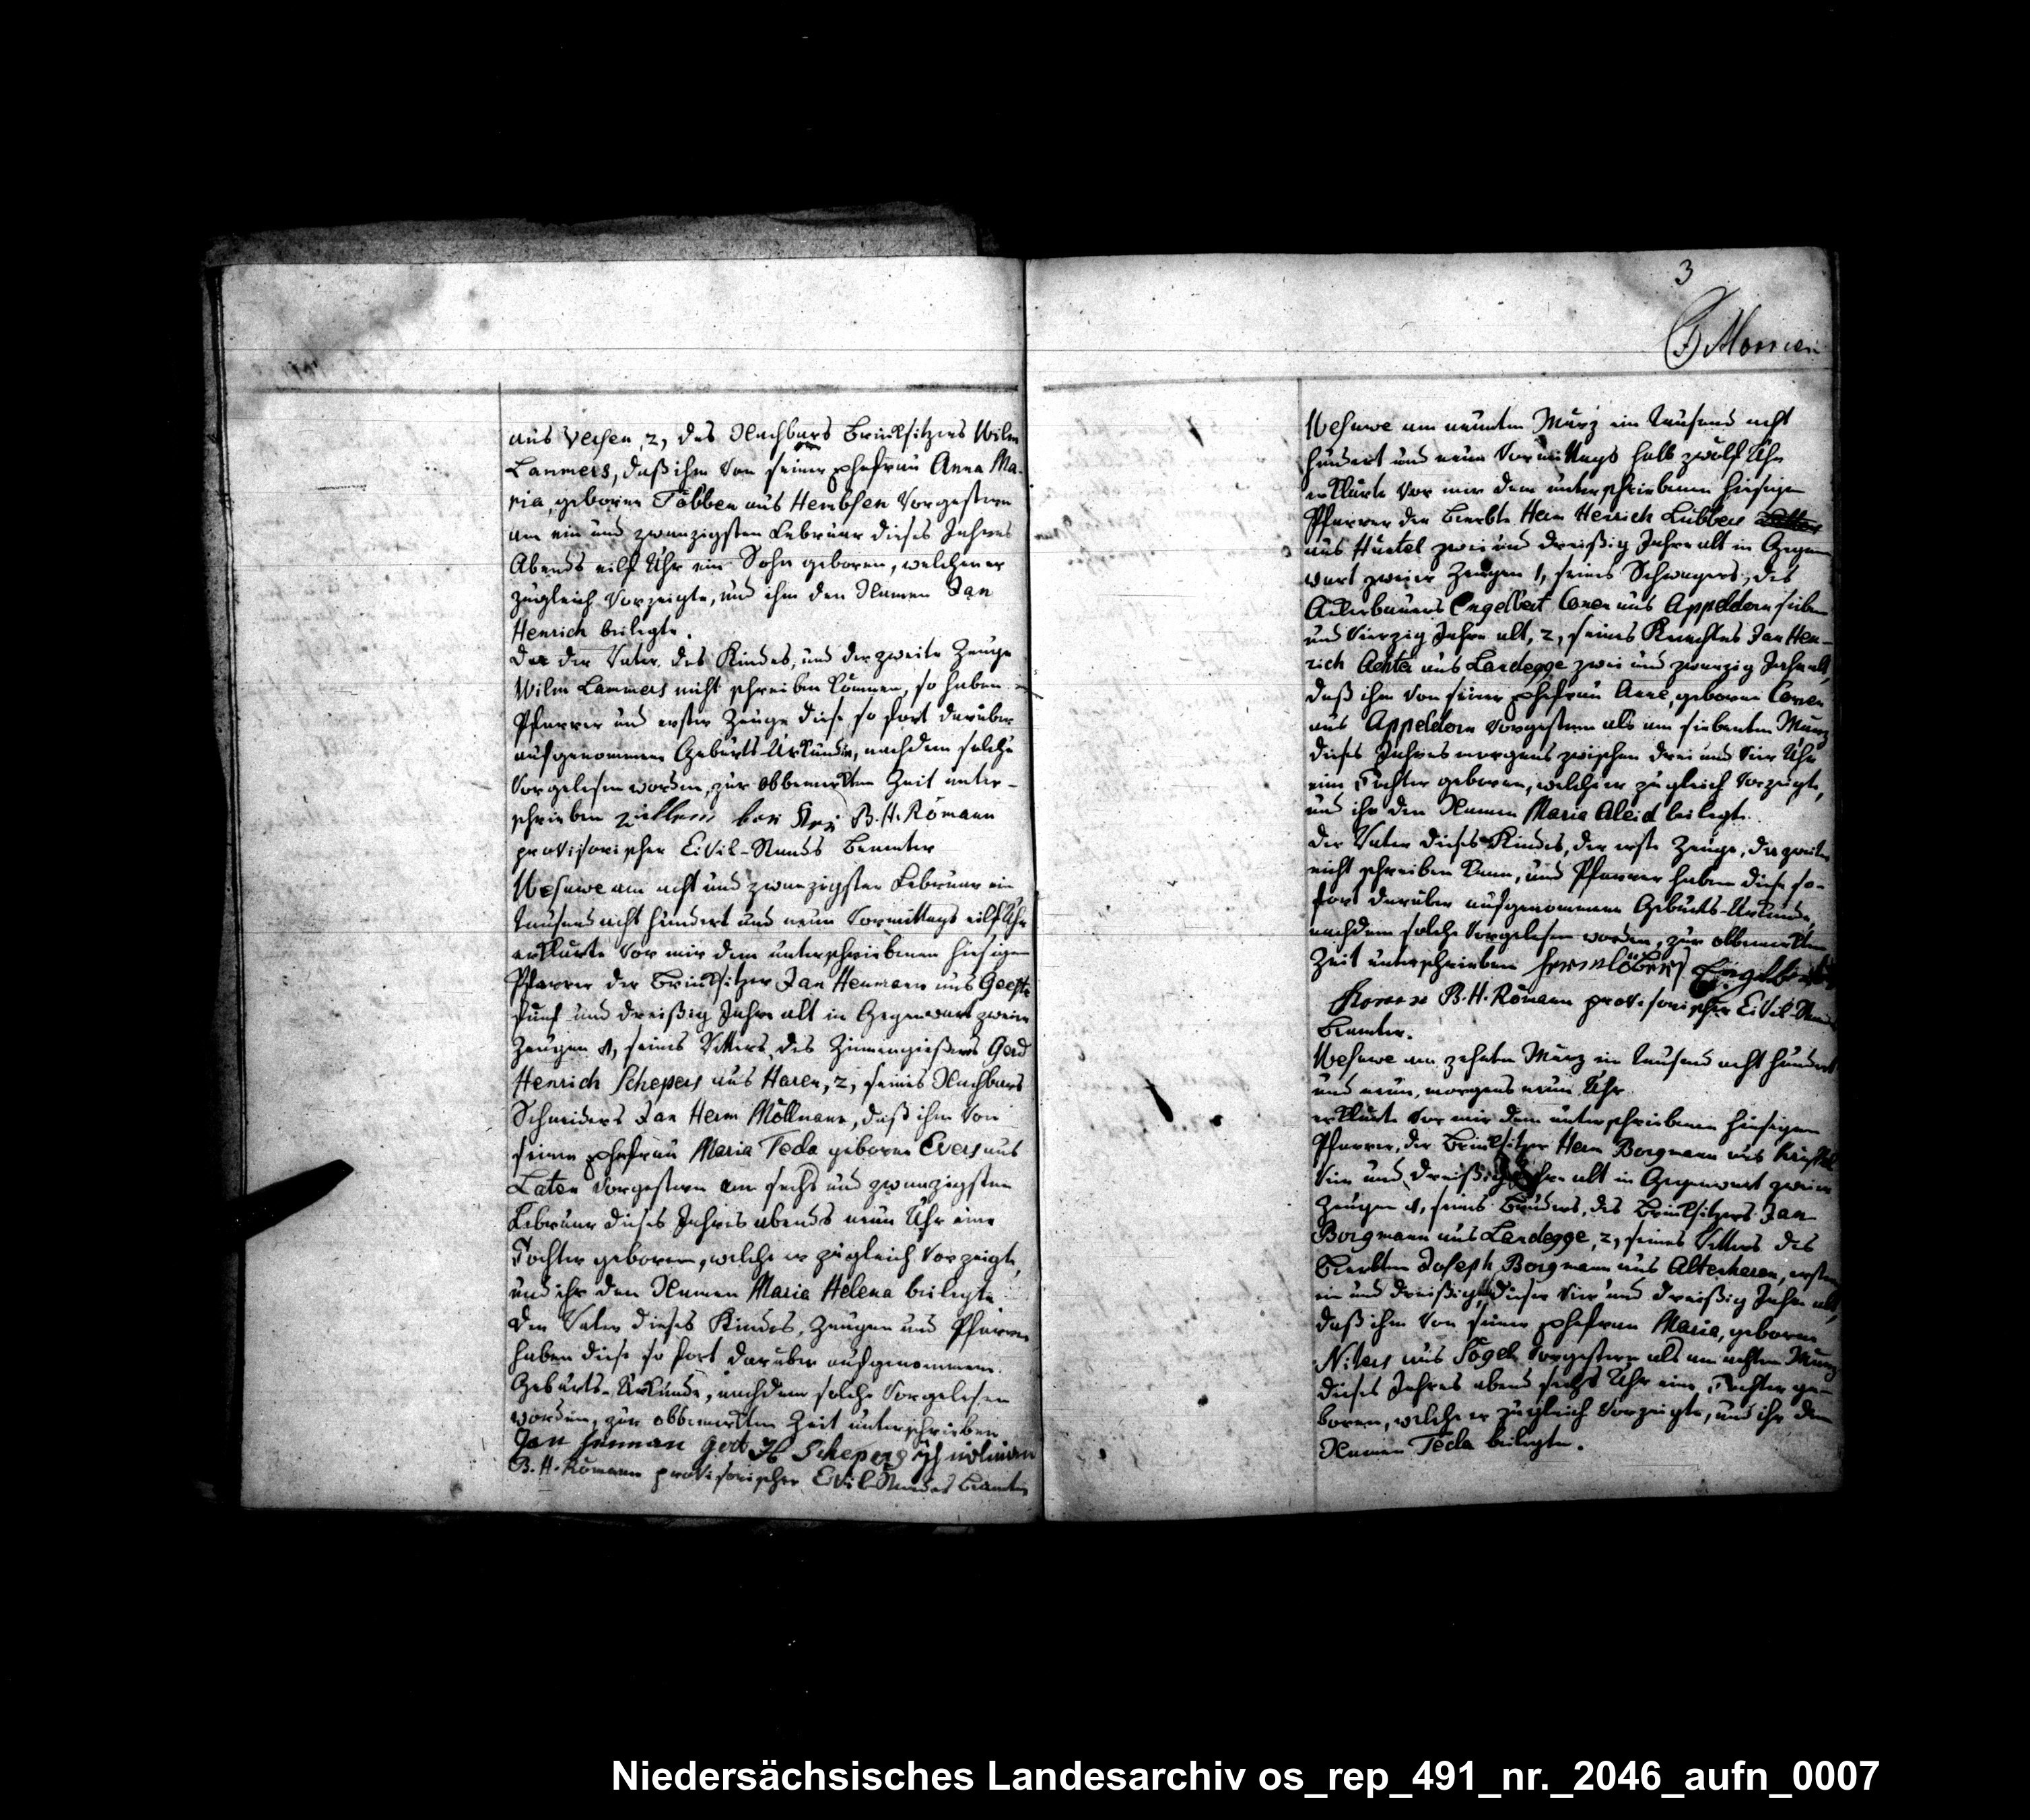 aus Versen, 2, des Nachbars Brinksitzers Wilm
Lammers, daß ihm von seiner Ehefrau Anna Ma-
ria, geborne Többen aus Hembsen vorgestern
am ein und zwanzigsten Februar dieses Jahres
Abends eilf Uhr ein Sohn geboren, welchen er
zugleich vorzeigte, und ihm den Namen Jan
Henrich beilegte.
Da der Vater des Kindes, und der zweite Zeuge
Wilm Lammers nicht schreiben können, so haben
Pfarrer und erster Zeuge diese so fort darüber
aufgenommene Geburts-Urkunde, nachdem solche
vorgelesen worden, zur obbemerkten Zeit unter-
schrieben B. H. Römann
provisorischer Civil-Stands Beamter
Wesuwe am acht und zwanzigsten Februar ein
tausend acht hundert und neun Vormittags eilf Uhr
erklärte vor mir dem unterschriebenen hiesigen
Pfarrer der Brinksitzer Jan Henmann aus Geeste
fünf und dreißig Jahre alt in Gegenwart zweier
Zeugen 1, seines Vetters des Zinnengießers Gerd
Henrich Schepers aus Haren, 2, seines Nachbars
Schneiders Jan Herm Möllmann, daß ihm von
seiner Ehefrau Maria Teda geborne Evers aus
Laten vorgestern am sechs und zwanzigsten
Februar dieses Jahres abends neun Uhr eine
Tochter geboren, welche er zugleich vorzeigte,
und ihr den Namen Maria Helena beilegte
Der Vater dieses Kindes, Zeugen und Pfarrer
haben diese so fort darüber aufgenommene
Geburts-Urkunde, nachdem solche vorgelesen
worden, zur obbemerkten Zeit unterschrieben
Jan Henman Gert H Schepers
B. H. Römann provisorischer Civil-Standes Beamter
3
Wesuwe am neunten März ein tausend acht
hundert und neun Vormittags halb zwölf Uhr
erklärte vor mir dem unterschriebenen hiesigen
Pfarrer der Beerbte Herm Henrich Lübbers
aus Huntel zwei und dreißig Jahre alt in Gegen
wart zweier Zeugen 1, seines Schwagers, des
Ackerbauers Engelbert Conen aus Appeldorn sieben
und vierzig Jahre alt, 2, seines Knechtes Jan Hen-
rich aus Landegge zwei und zwanzig Jahre alt,
daß ihm von seiner Ehefrau Anne, geborne Conen
aus Appeldorn vorgestern als am siebenten März
dieses Jahres morgens zwischen drei und vier Uhr
eine Tochter geboren, welche er zugleich vorzeigte,
und ihr den Namen Maria Aleid beilegte.
Der Vater dieses Kindes, der erste Zeuge, da zweiter
nicht schreiben kann, und Pfarrer haben diese so-
fort darüber aufgenommene Geburts-Urkunde,
nachdem solche vorgelesen worden, zur obbemerkten
Zeit unterschrieben Herm Löbers Engelbert
Konen B. H. Römann provisorischer Civil-Stands
Beamter.
Wesuwe am zehnten März ein tausend acht hundert
und neun, morgens neun Uhr
erklärte vor mir dem unterschriebenen hiesigen
Pfarrer, der Brinksitzer Herm Borgmann aus
vier und dreißig Jahre alt in Gegenwart zweier
Zeugen 1, seines Bruders, des Brinksitzers Jan
Borgmann aus Landegge, 2, seines Vetters des
Beerbten Joseph Borgmann aus Altenharen, erster
ein und dreißig, dieser vier und dreißig Jahre alt,
daß ihm von seiner Ehefrau Maria, geborne
aus Sögel vorgestern als am achten März
dieses Jahres abend sechs Uhr eine Tochter ge-
boren, welche er zugleich vorzeigte, und ihr den
Namen Teda beilegte.
Niedersächsisches Landesarchiv os_rep_491_nr._2046_aufn_0007